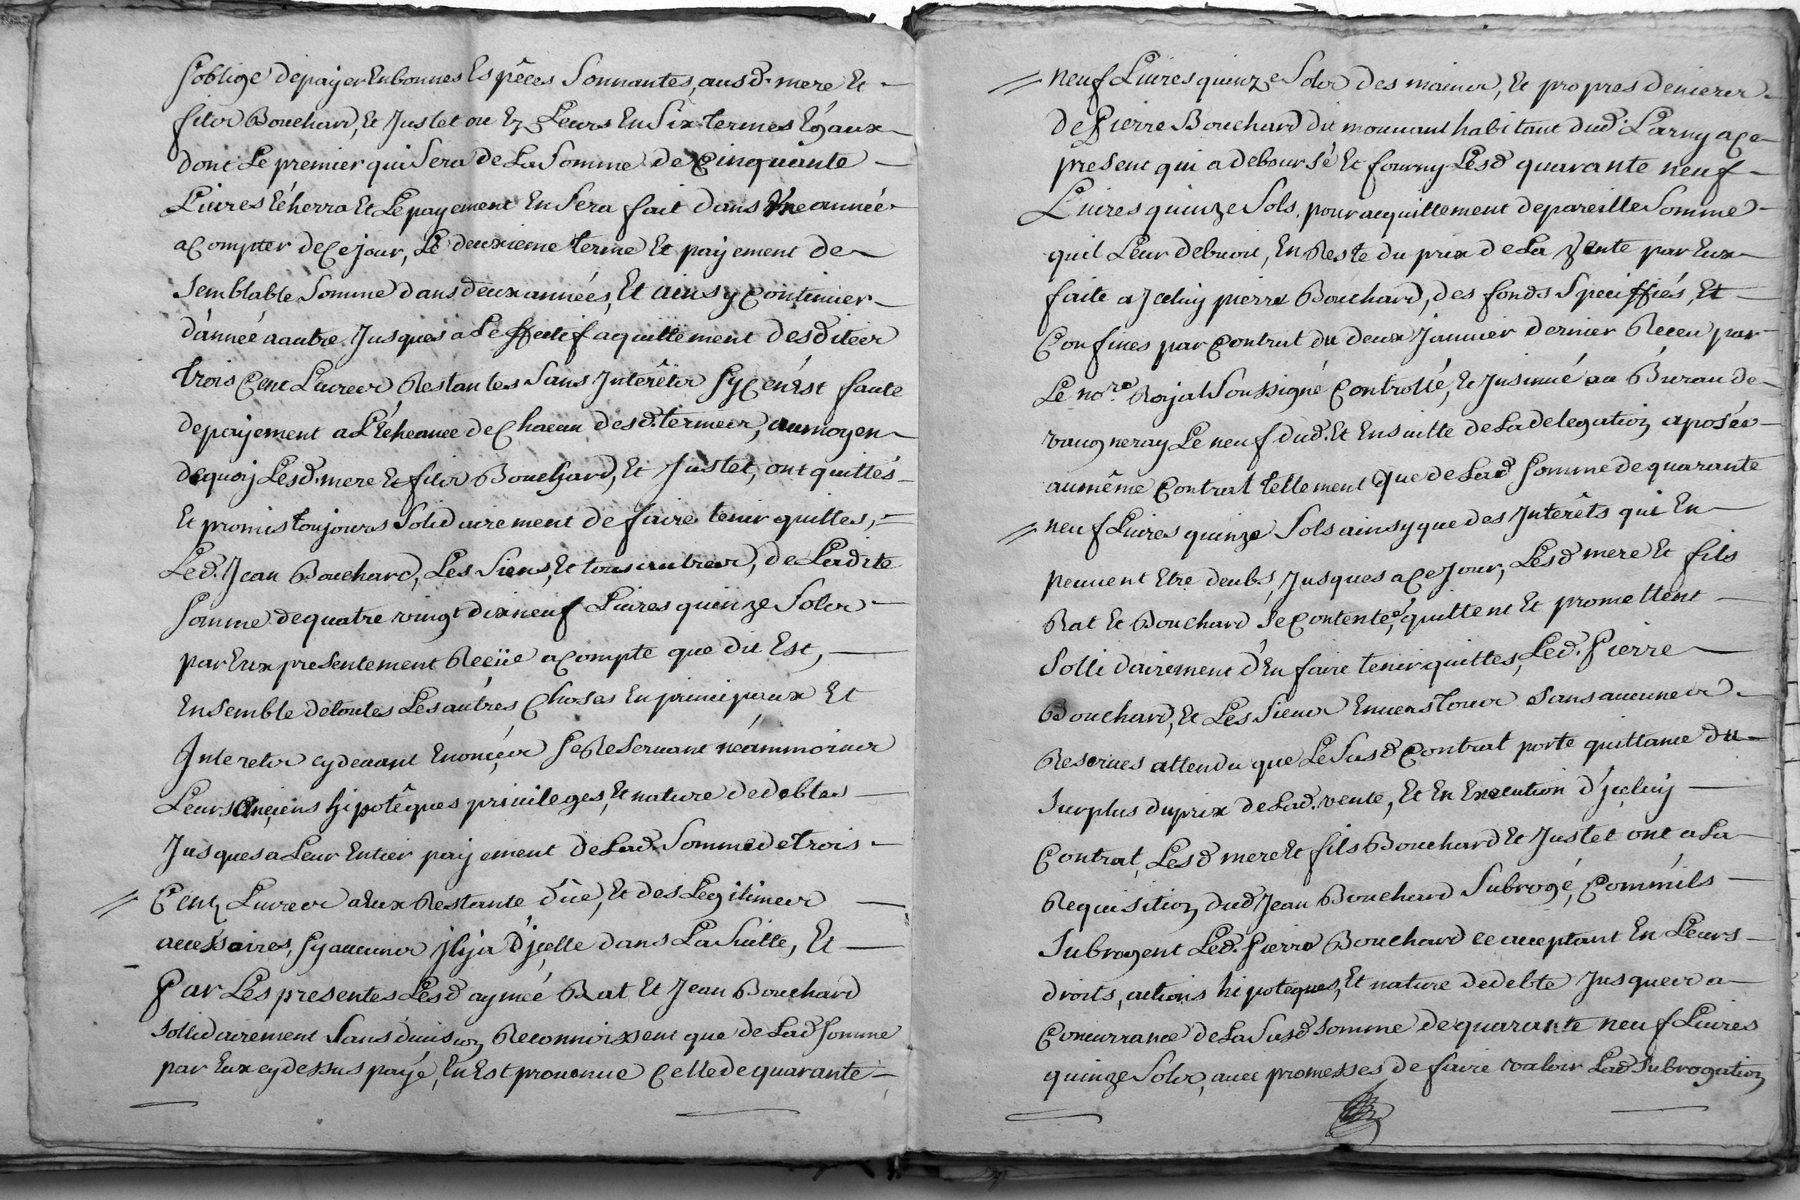 s'oblige de payer En bonnes Espêces Sonnantes, ausd. mere Et
fils Bouchard, Et Justet ou Ez Leurs En Six termes Egaux
dont Le premier qui Sera de La Somme de Cinquante
Livres Echerra Et Le payement En Sera fait dans Une année
a Compter de Ce jour, Le deuxieme terme Et payement de
Semblable Somme dans deux années, Et ainsy Continuer
d'année a autre Jusques a Leffectif aquittement desdites
trois Cent Livres Restantes Sans Interêts Sy Ce n'Est faute
de payement a L'Echeance de Chacun desd. termes, au moyen
de quoy Lesd. mere Et fils Bouchard, Et Justet, ont quittés
Et promis toujours Solidairement de faire tenir quittes,
Led. Jean Bouchard, Les Siens, Et tous autres, de Ladite
Somme de quatre vingt dix neuf Livres quinze Sols
par Eux presentement Reçüe a Compte que dit Est,
Ensemble de toutes Les autres Choses En principaux Et
Interets cy devant Enoncées Se Reservant néammoins
Leurs Anciens hipotêques privileges, Et nature de debtes
Jusques a Leur Entier payement de Lad. Somme de trois
Cent Livres a Eux Restante düe, Et des Legitimes
accessoires, Sy aucuns Jl y a D'jcelle dans La Suitte, Et
Par Les presentes Lesd. aymée Rat Et Jean Bouchard
Sollidairement Sans division Reconnoissent que de Lad. Somme
par Eux cy dessus payé, En Est provenue Celle de quarante
neuf Livres quinze Sols des mains, Et propres deniers
de Pierre Bouchard dit mouvant habitant dud. Larny a Ce
present qui a deboursé Et fourny Lesd. quarante neuf
Livres quinze Sols, pour acquittement de pareille Somme
quil Leur debvoit, En Reste du prix de La Vente par Eux
faite a Jceluy pierre Bouchard, des fonds Speciffiés, Et
Confines par Contrat du deux Janvier dernier Receu par
Le nore. Royal Soussigné Controllé, Et Insinué au Bureau de
vaugneray Le neuf dud. Et Ensuitte de La delegation aposée
au même Contrat tellement Que de Lad. Somme de quarante
neuf Livres quinze Sols ainsy que des Interêts qui En
peuvent Etre deubs, Jusques a Ce Jour, Lesd. mere Et fils
Rat Et Bouchard Se Contentes, quittent Et promettent
Sollidairement d'En faire tenir quittes, Led. Pierre
Bouchard, Et Les Siens Envers tous Sans aucunes
Reserves attendu que Le Susd. Contrat porte quittance du
Surplus du prix de Lad. vente, Et En Execution d'jceluy
Contrat, Lesd. mere Et fils Bouchard Et Justet ont a La
Requisition dud. Jean Bouchard Subrogé, Comm'ils
Subrogent Led. Pierre Bouchard ce acceptant En Leurs
droits, actions hipoteques, Et nature de debte Jusques a
Concurrance de La Susd. Somme de quarante neuf Livres
quinze Sols, avec promesses de faire valoir Lad. Subrogation